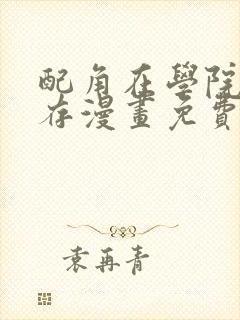 配角在學院
存漫畫免費
袁再青